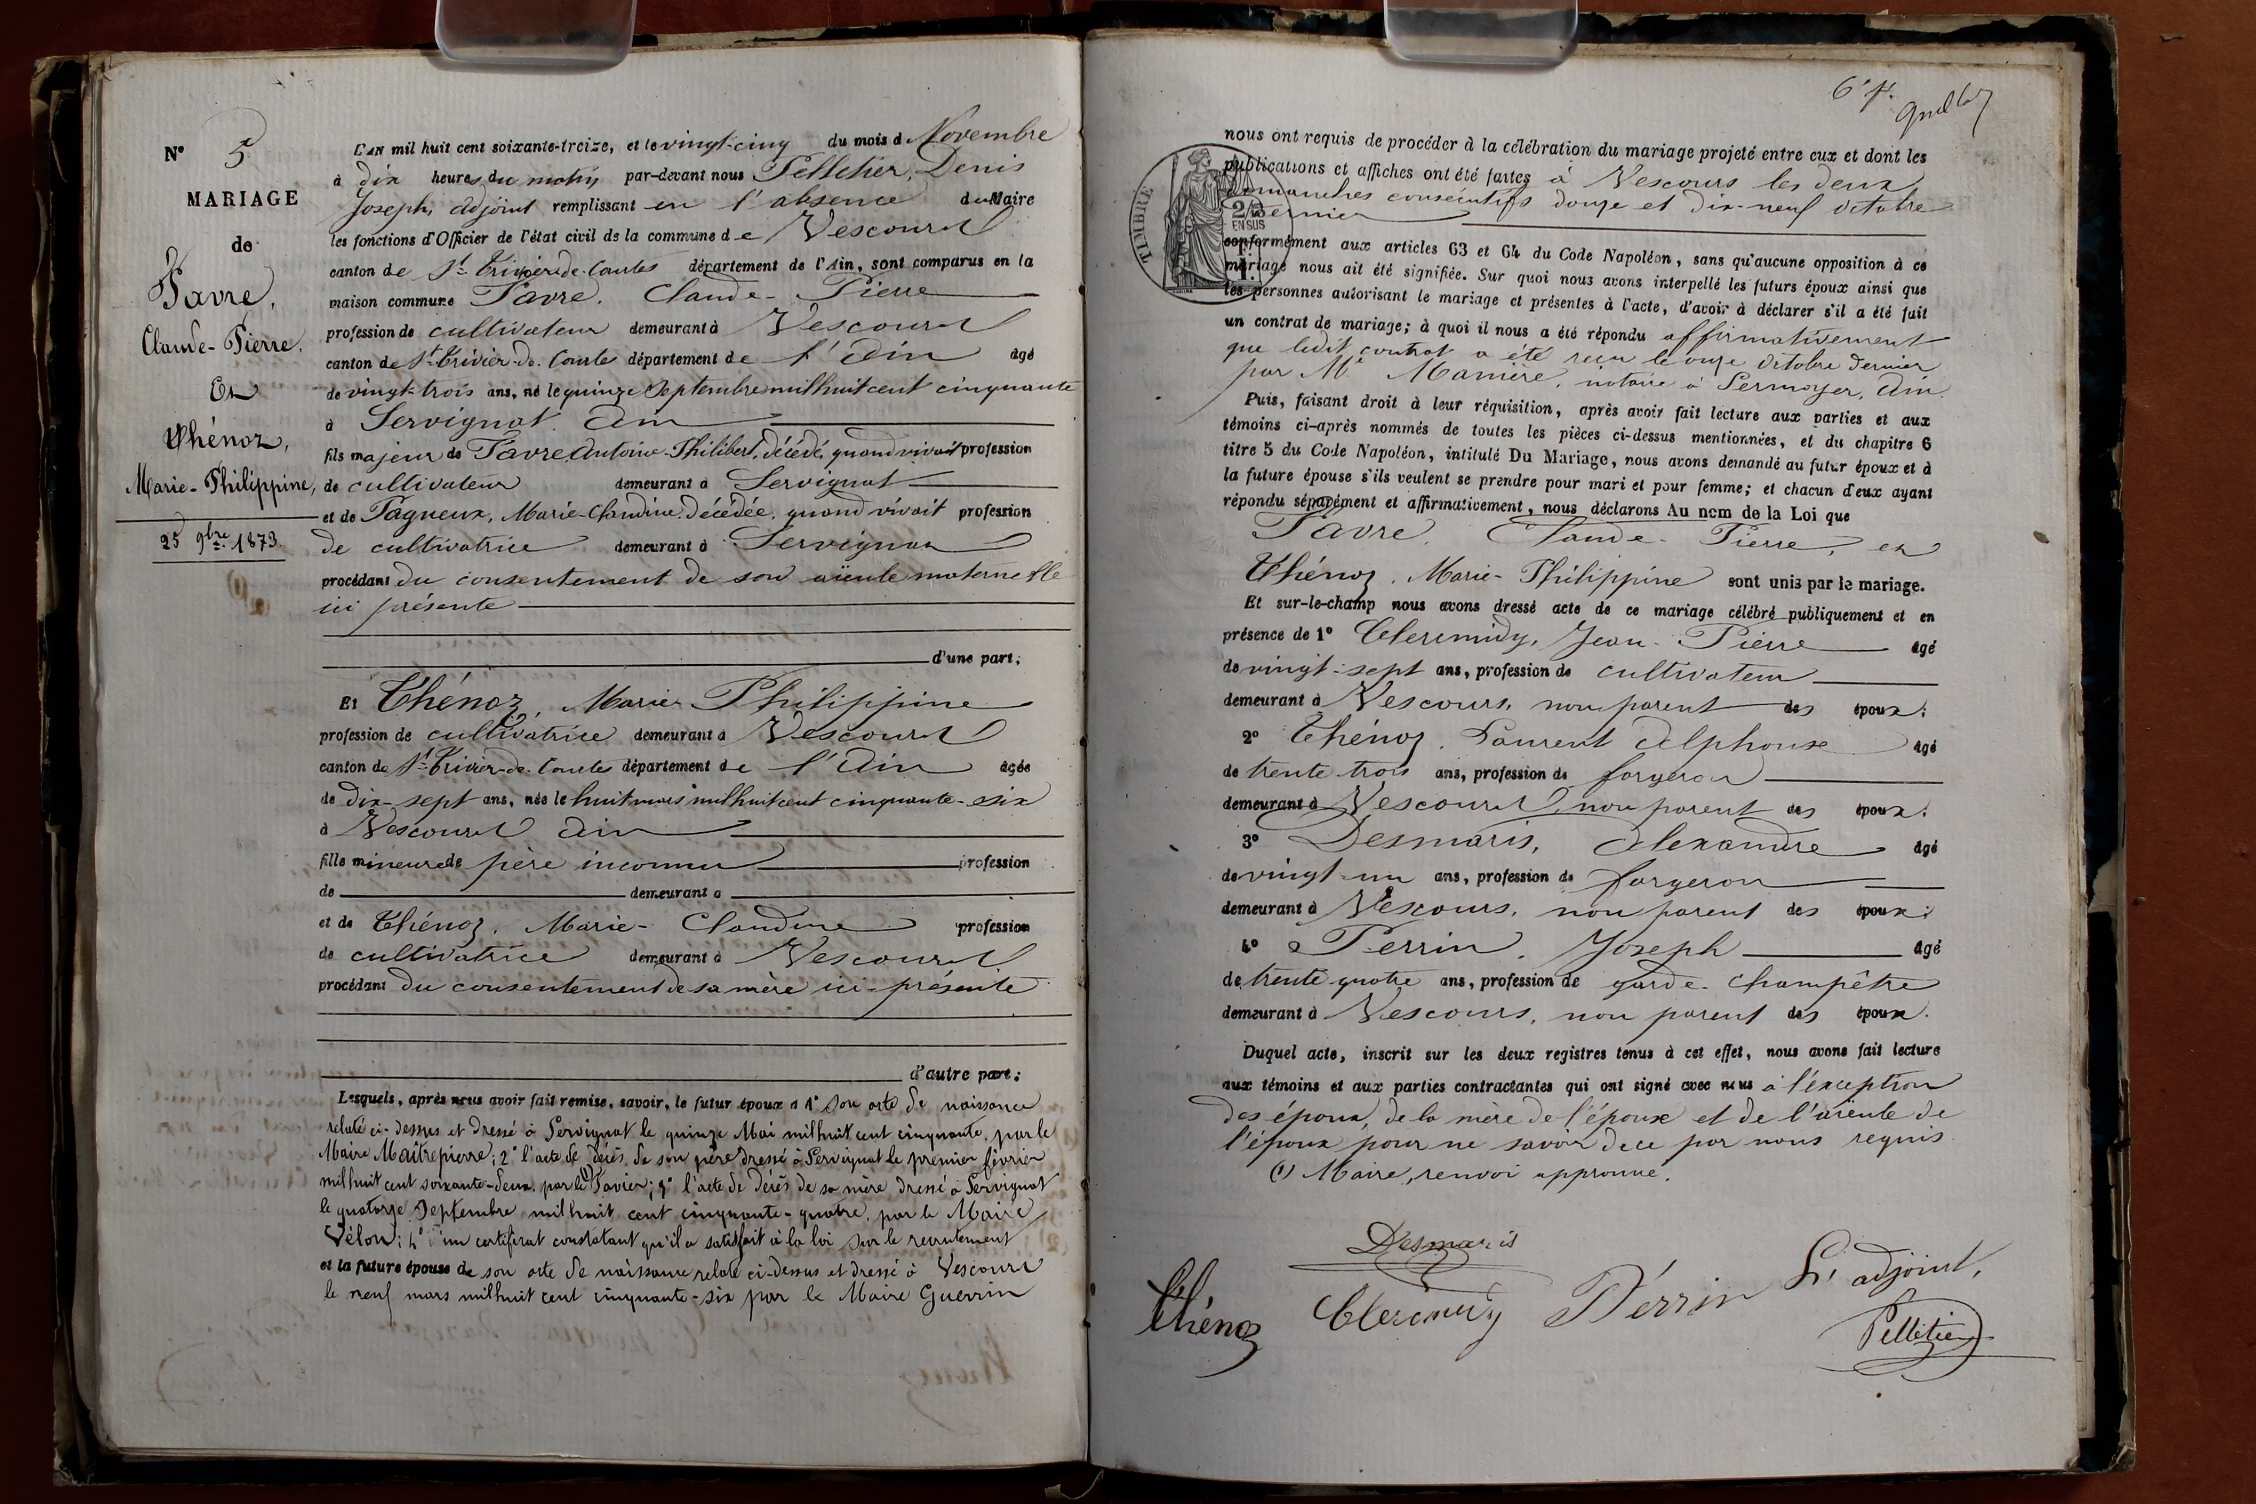 N° 5
MARIAGE
de
Favre,
Claude-Pierre.
Et
Thénoz,
Marie-Philippine,
25 9bre 1873.
L'AN mil huit cent soixante-treize, et le vingt-cinq du mois d Novembre
à dix heures du matin par-devant nous Pelletier, Denis
Joseph, adjoint remplissant en l'absence du Maire
les fonctions d'Officier de l'état civil de la commune de Vescours
canton de St Trivier-de-Courtes département de l'Ain, sont comparus en la
maison commune Favre, Claude-Pierre
profession de cultivateur demeurant à Vescours
canton de St Trivier-de-Courtes département de l'Ain âgé
de vingt-trois ans, né le quinze Septembre mil huit cent cinquante
à Servignat Ain
fils majeur de Favre, Antoine-Philibert, décédé, quand vivait profession
de cultivateur demeurant à Servignat
et de Pagneux, Marie-Claudine, décédée, quand vivait profession
de cultivatrice demeurant à Servignat
procédant du consentement de son aïeule maternelle
ici présente
d'une part;
Et Thénoz, Marie-Philippine
profession de cultivatrice demeurant à Vescours
canton de St Trivier-de-Courtes département de l'Ain âgée
de dix-sept ans, née le huit mars mil huit cent cinquante-six
à Vescours Ain
fille mineure de père inconnu profession
de demeurant à
et de Thénoz, Marie-Claudine profession
de cultivatrice demeurant à Vescours
procédant du consentement de sa mère ici-présente
d'autre part:
Lesquels, après nous avoir fait remise, savoir, le futur époux d 1° son acte de naissance
relaté ci-dessus et dressé à Servignat le quinze Mai mil huit cent cinquante, par le
Maire Maîtrepierre; 2° l'acte de décès de son père dressé à Servignat le premier février
mil huit cent soixante-deux, par le (1) Favier; 3° l'acte de décès de sa mère dressé à Servignat
le quatorze Septembre mil huit cent cinquante-quatre, par le Maire
Vélon; 4° d'un certificat constatant qu'il a satisfait à la loi sur le recrutement
et la future épouse de son acte de naissance relaté ci-dessus et dressé à Vescours
le neuf mars mil huit cent cinquante-six par le Maire Guerrin
6e f.
TIMBRE
2/10
EN SUS
nous ont requis de procéder à la célébration du mariage projeté entre eux et dont les
publications et affiches ont été faites à Vescours les deux
dimanches consécutifs douze et dix-neuf octobre
dernier
conformément aux articles 63 et 64 du Code Napoléon, sans qu'aucune opposition à ce
mariage nous ait été signifiée. Sur quoi nous avons interpellé les futurs époux ainsi que
les personnes autorisant le mariage et présentes à l'acte, d'avoir à déclarer s'il a été fait
un contrat de mariage; à quoi il nous a été répondu affirmativement
que ledit contrat a été reçu le onze octobre dernier
par Me Manière, notaire à Sermoyer, Ain.
Puis, faisant droit à leur réquisition, après avoir fait lecture aux parties et aux
témoins ci-après nommés de toutes les pièces ci-dessus mentionnées, et du chapitre 6
titre 5 du Code Napoléon, intitulé Du Mariage, nous avons demandé au futur époux et à
la future épouse s'ils veulent se prendre pour mari et pour femme; et chacun d'eux ayant
répondu séparément et affirmativement, nous déclarons Au nom de la Loi que
Favre, Claude-Pierre, et
Thénoz, Marie-Philippine sont unis par le mariage.
Et sur-le-champ nous avons dressé acte de ce mariage célébré publiquement et en
présence de 1° Clermidy, Jean-Pierre âgé
de vingt-sept ans, profession de cultivateur
demeurant à Vescours, non parent des époux;
2° Thénoz, Laurent Alphonse âgé
de trente trois ans, profession de forgeron
demeurant à Vescours, non parent des époux.
3° Desmaris, Alexandre âgé
de vingt-un ans, profession de forgeron
demeurant à Vescours, non parent des époux;
4° Perrin, Joseph âgé
de trente-quatre ans, profession de garde-champêtre
demeurant à Vescours, non parent des époux.
Duquel acte, inscrit sur les deux registres tenus à cet effet, nous avons fait lecture
aux témoins et aux parties contractantes qui ont signé avec nous à l'exception
des époux, de la mère de l'épouse et de l'aïeule de
l'époux pour ne savoir de ce par nous requis
(1) Maire, renvoi approuvé.
Desmaris
Thénoz Clermidy Perrin L'adjoint,
Pelletier